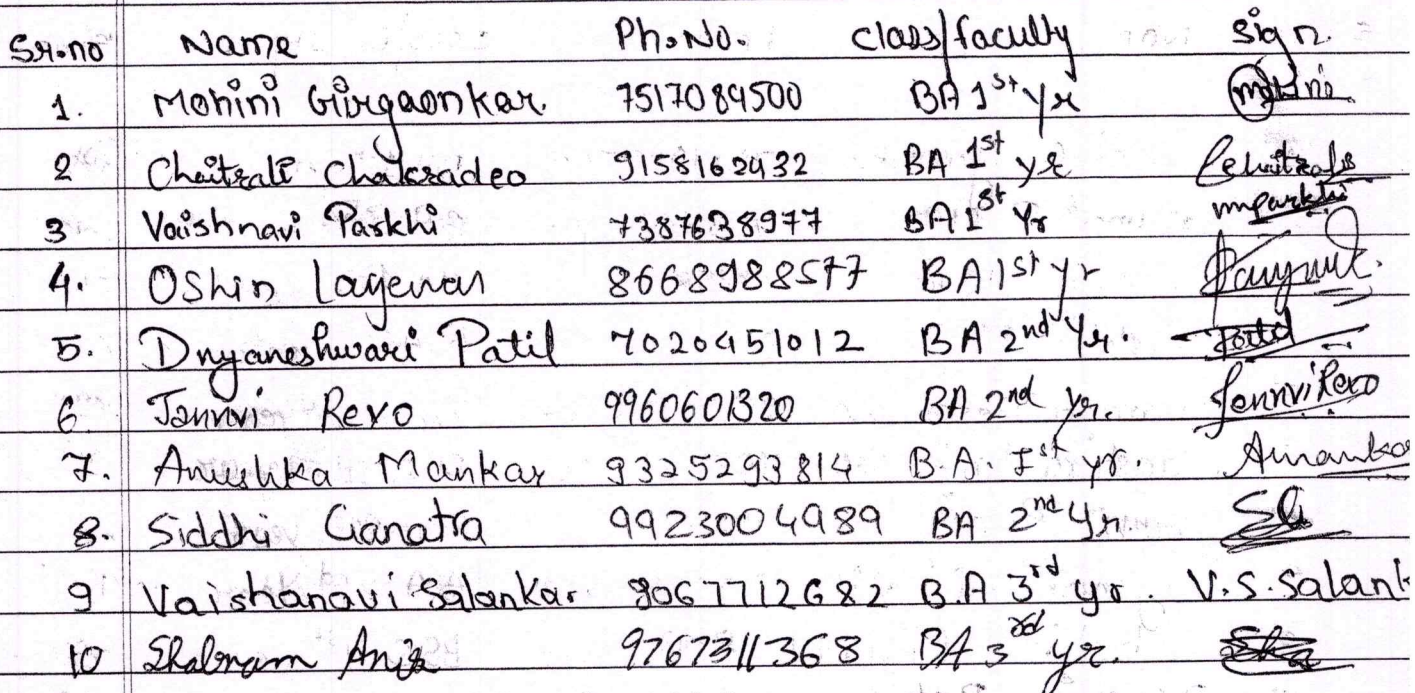 Sr.no Name Ph.No. class/faculty Sign.
1. Mohini Girgaonkar. 7517089500 BA 1st yr
2 Chaitrali Chakradeo 9158162432 BA 1st yr Chaitrali
3 Vaishnavi Parkhi 7387638977 BA 1st Yr mparkhi
4. Oshin 8668988577 BA 1st yr
5. Dnyaneshwari Patil 7020451012 BA 2nd Yr. Patil
6 Jannvi Revo 9960601320 BA 2nd yr. Jennvi Revo
7. Anushka Mankar 9325293814 B.A. Ist yr. Amanka
8. Siddhi Ganatra 9923004989 BA 2nd Yr
9 Vaishanavi Salankar 9067712682 B.A 3rd yr. V.S.Salank
10 Shabnam 9767311368 BA 3rd yr.